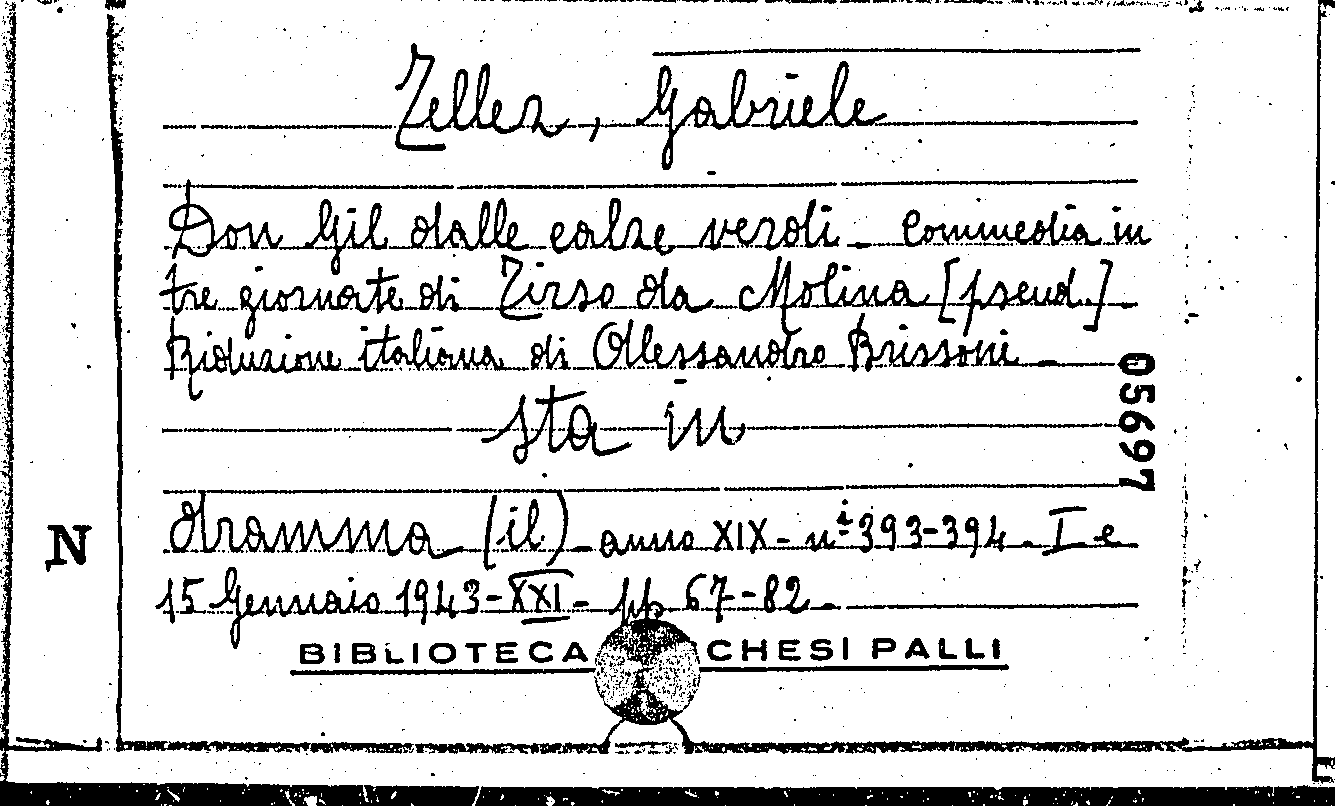 Tellez, Gabriele
Don Gil dalle calze verdi - Commedia in
tre giornate di Tirso da Molina [pseud.] -
Riduzione italiana di Alessandro Brissoni -
sta in
dramma (il) - anno XIX - nⁱ 393-394 - I e
15 Gennaio 1943-XXI - pp 67-82 -
05697
N
BIBLIOTECA CHESI PALLI